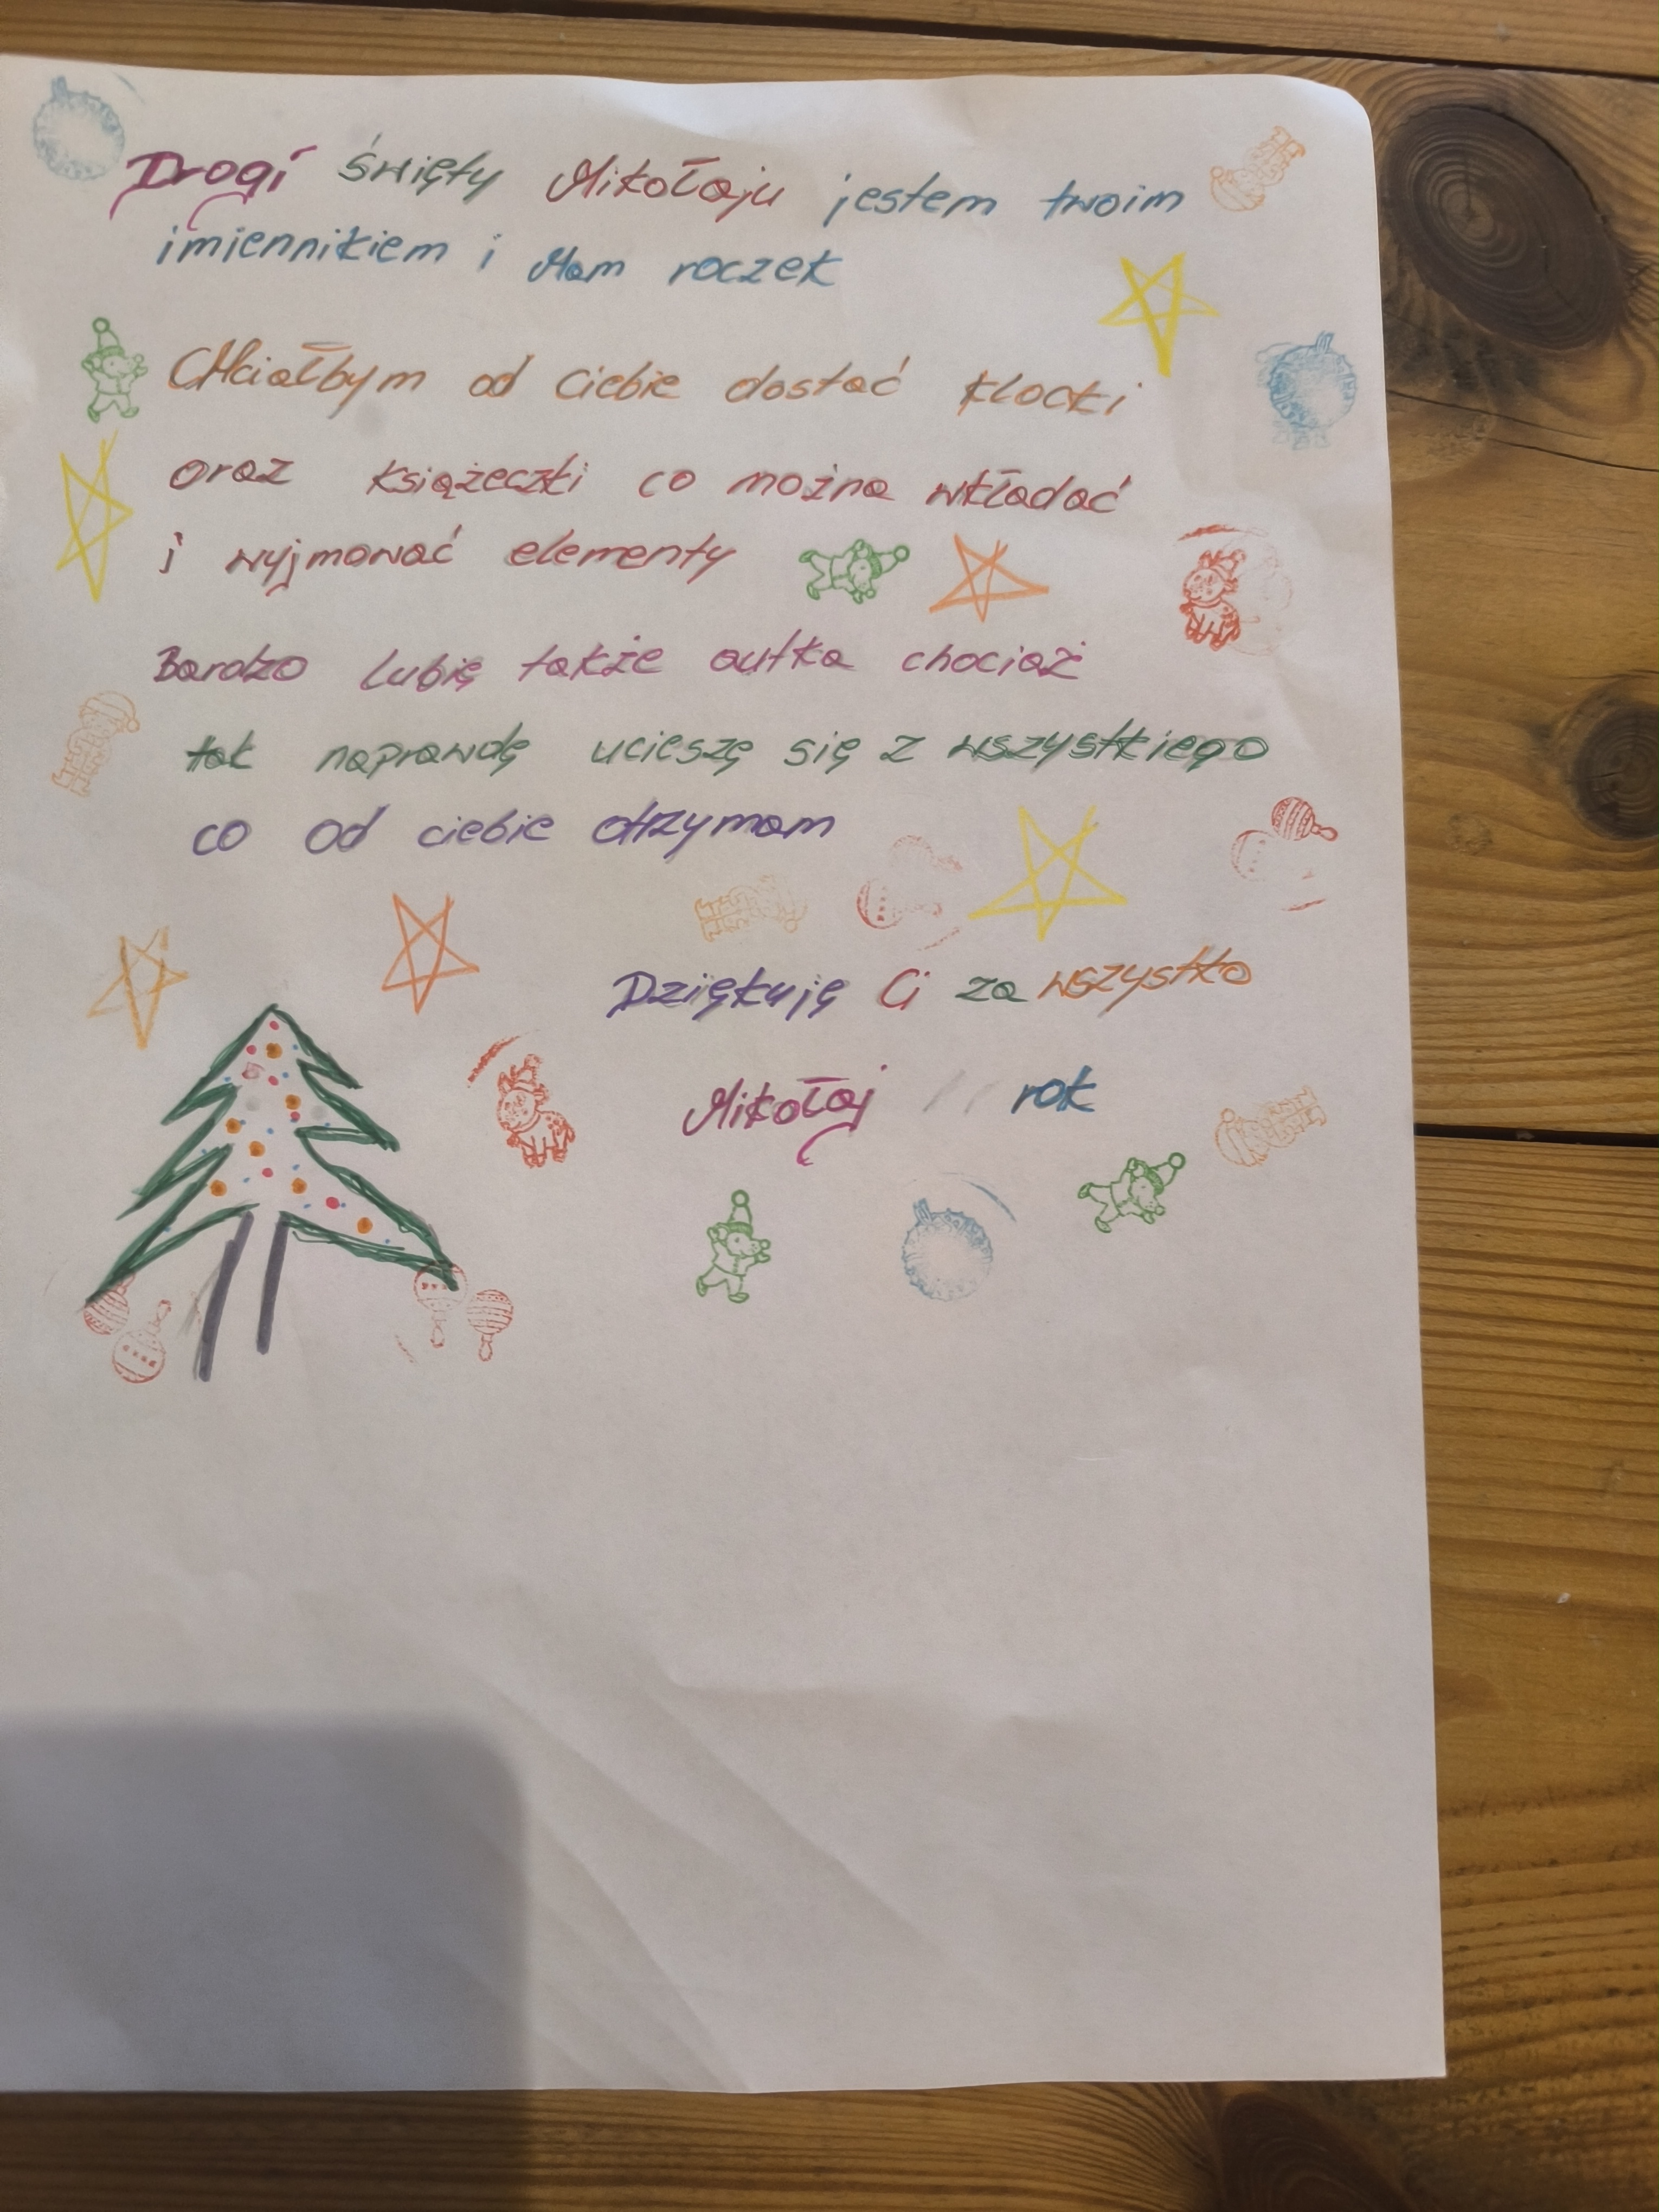 Drogi święty Mikołaju jestem twoim
imiennikiem i Mam roczek
CHciałbym od Ciebie dostać klocki
oraz książeczki co można wkładać
i wyjmować elementy
Bardzo lubię także autka chociaż
tak naprawdę ucieszę się z wszystkiego
co od ciebie otrzymam
Dziękuję Ci za wszystko
Mikołaj rok